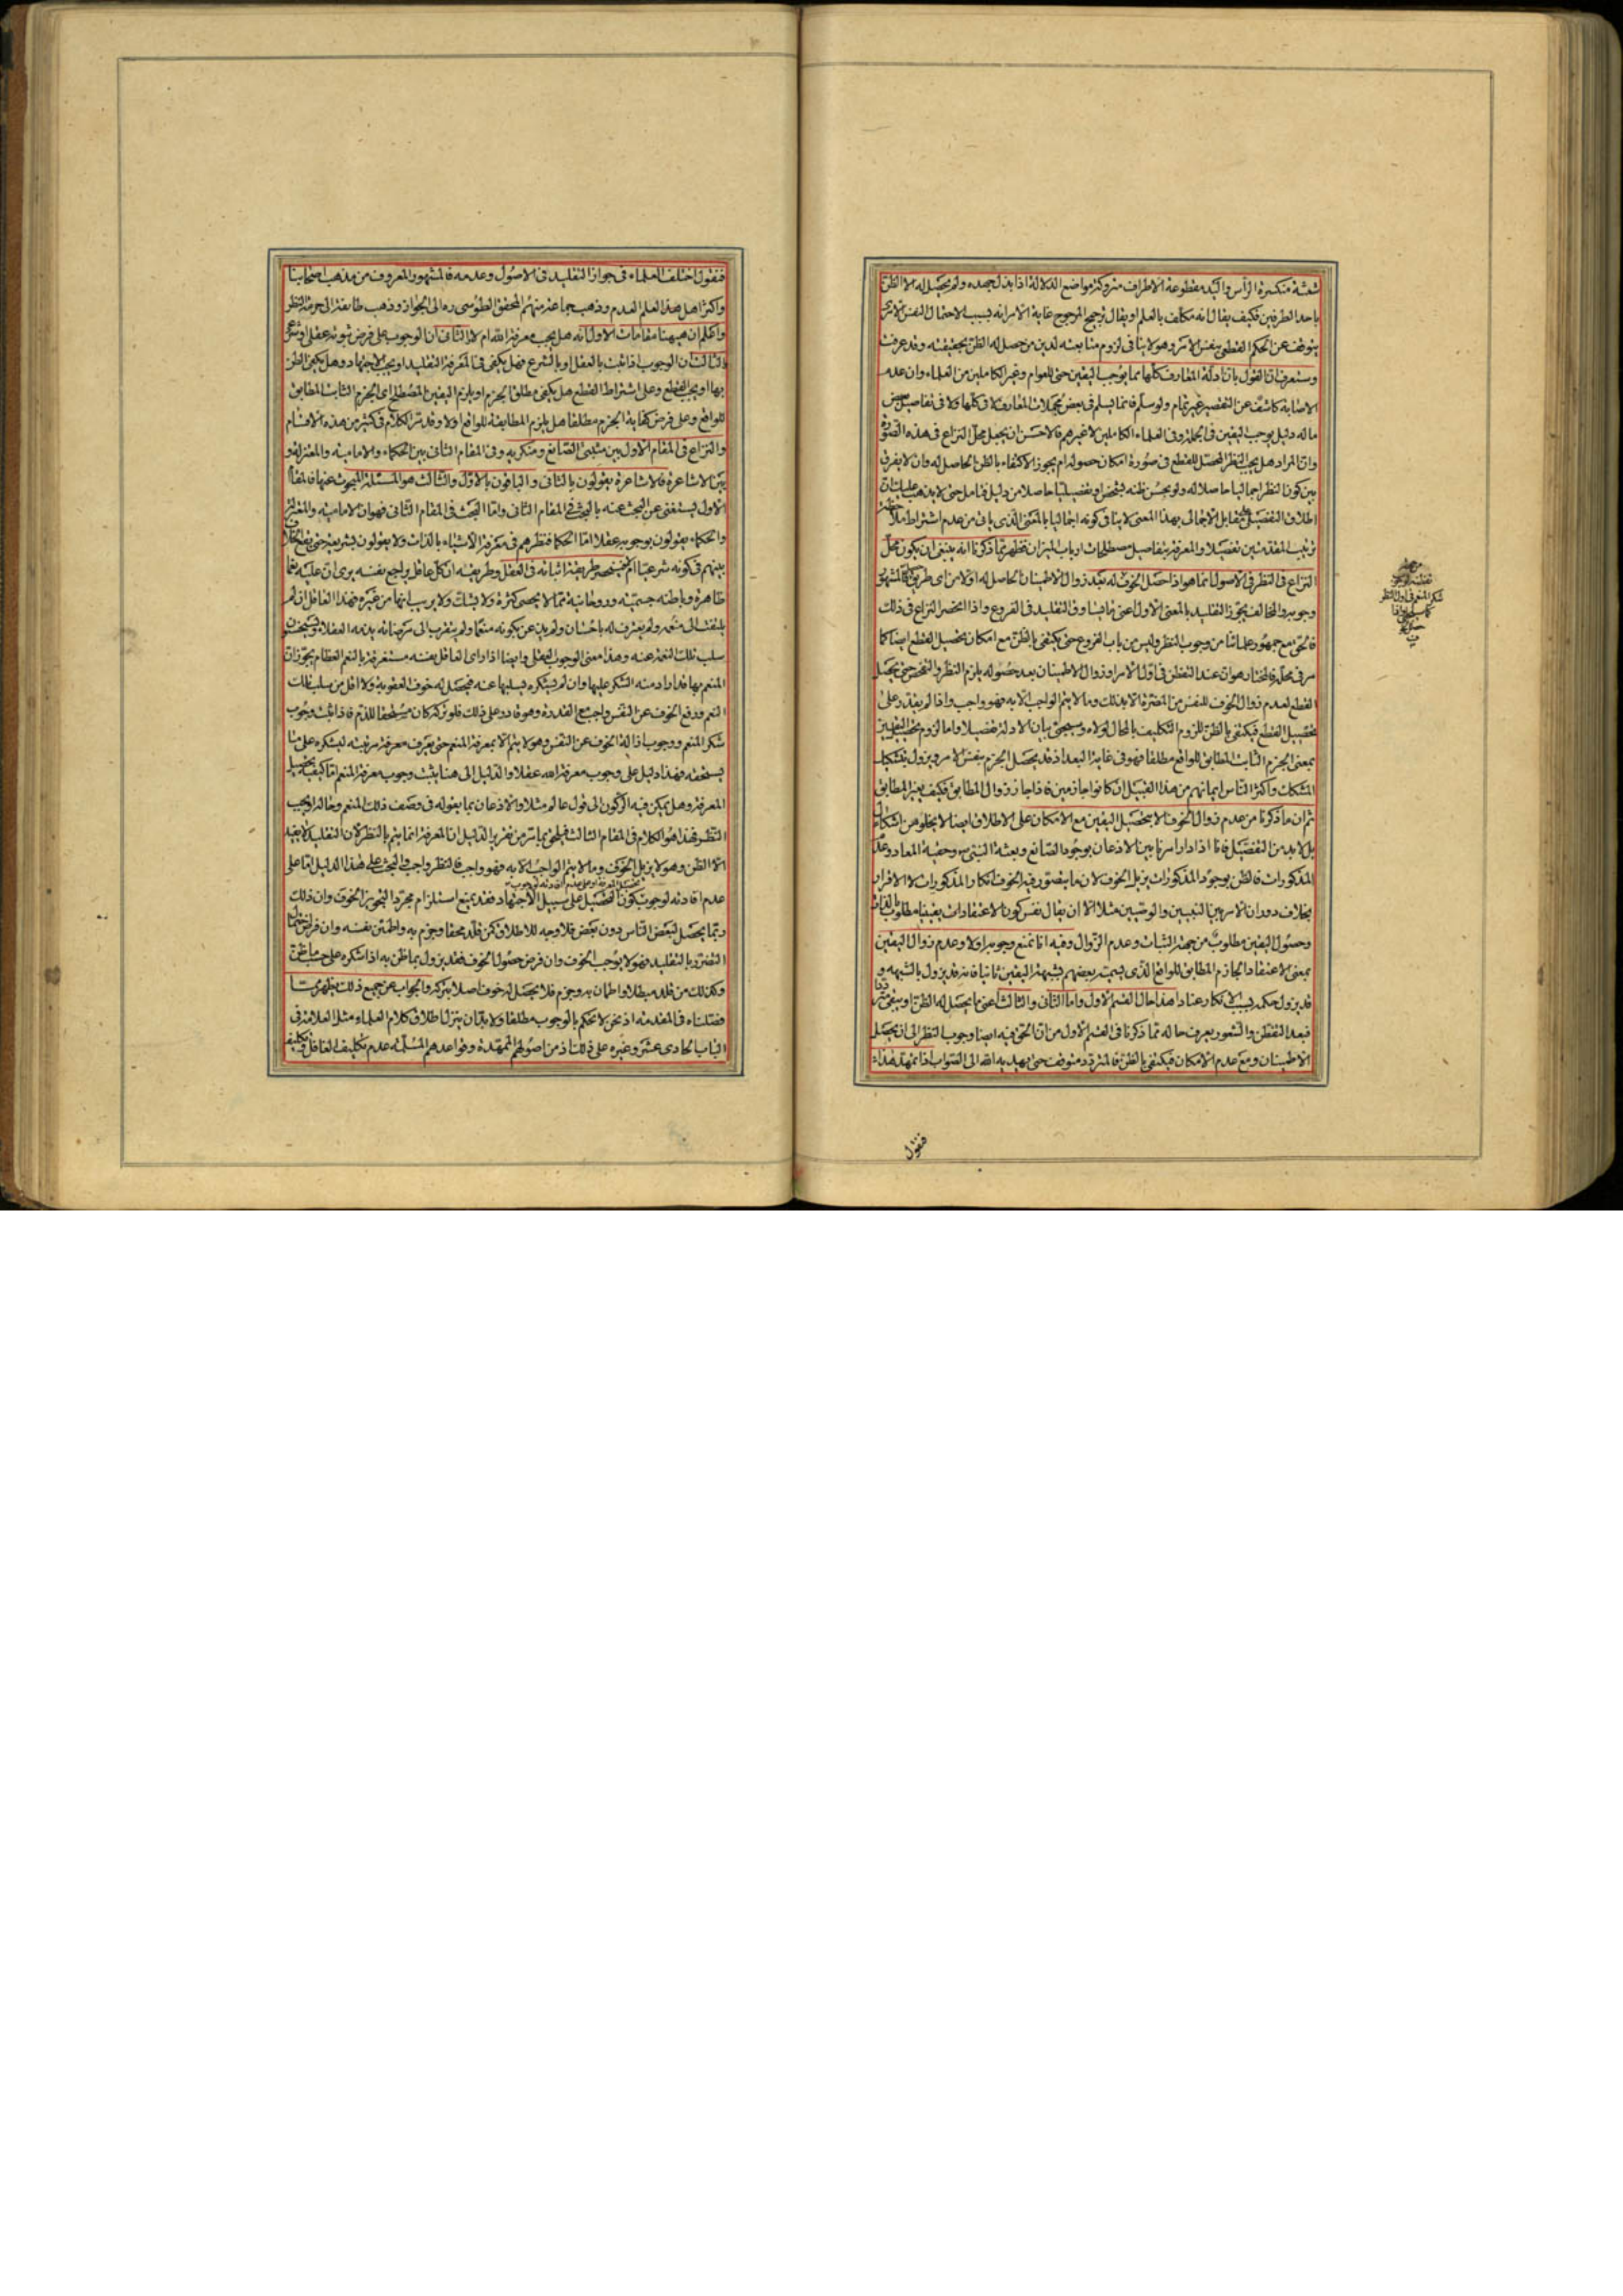 شعثة منكسرة الرأس واليد مقطوعة الاطراف متروكة مواضع الدلالة اذا بذل جهده ولم يحصل له الا الظن
باحد الطرفين فكيف يقال انه مكلف بالعلم او يقال ترجيح المرجوح غاية الامر انه بسبب الاحتمال النفس الامرى
يتوقف عن الحكم القطعى بنفس الامر وهو لا ينافى لزوم متابعته لدين من حصل له الظن بحقيقته وقد عرفت
وستعرف ان القول بان ادلة المعارف كلها مما يوجب اليقين حتى للعوام وغير الكاملين من العلماء وان عدم
الاصابة كاشف عن التقصير غير تمام ولو سلم فانما يسلم فى بعض مجملات المعارف لا فى كلها ولا فى تفاصيل بعض
ما له دليل يوجب اليقين فى الجملة وفى العلماء الكاملين لا غيرهم فالاحسن ان يجعل محل النزاع فى هذه الصورة
وان المراد هل يجب النظر المحصل للقطع فى صورة امكان حصوله ام يجوز الاكتفاء بالظن الحاصل له وان لا يفرق
بين كون النظر اجماليا حاصلا له ولو بحسن ظنه بشخص او تفصيليا حاصلا من دليل فتامل حتى لا يذهب عليك ان
اطلاق التفصيل مقابل الاجمالى بهذا المعنى لا ينافى كونه اجماليا بالمعنى الذى ياتى من عدم اشتراط ملاحظة
ترتيب المقدمتين تفصيلا والمعرفة بتفاصيل مصطلحات ارباب الميزان فظهر مما ذكرنا انه ينبغى ان يكون محل
النزاع فى النظر فى الاصول انما هو اذا حصل الخوف له بعد زوال الاطمينان الحاصل له اولا من اى طريق فالمشهور
وجوبه والمخالف يجوز التقليد بالمعنى الاول اعنى ما يساوق التقليد فى الفروع واذا انحصر النزاع فى ذلك
فالحق مع جمهور علمائنا من وجوب النظر وليس من باب الفروع حتى يكتفى بالظن مع امكان تحصيل القطع ايضا كما
مر فى محله فالمختار هو ان عند التفطن فى اول الامر او زوال الاطمينان بعد حصوله يلزم النظر والتفحص حتى يحصل
القطع لعدم زوال الخوف للنفس من المضرة الا بذلك وما لا يتم الواجب الا به فهو واجب واذا لم يقدر على
تحصيل القطع فيكتفى بالظن للزوم التكليف بالمحال لولاه وسيجئ بيان الادلة مفصلا واما لزوم تحصيل اليقين
بمعنى الجزم الثابت المطابق للواقع مطلقا فهو فى غاية البعد اذ قد يحصل الجزم بنفس الامر ويزول بتشكيك
المشكك واكثر الناس ايمانهم من هذا القبيل ان كانوا جازمين فاذا جاز زوال المطابق فكيف بغير المطابق
ثم ان ما ذكرنا من عدم زوال الخوف الا بتحصيل اليقين مع الامكان على الاطلاق ايضا لا يخلو من اشكال
بل لا بد من التفصيل فانا اذا دار امرنا بين الاذعان بوجود الصانع وبعثة النبى ص وحقية المعاد وعدم
المذكورات فالظن بوجود المذكورات يزيل الخوف لان ما يتصور فيه الخوف انكار المذكورات لا الاقرار
بخلاف دوران الامر بين النبيين والوصيين مثلا الا ان يقال نفس كون الاعتقادات يقينيا مطلوب بالذات
وحصول اليقين مطلوب من جهة الثبات وعدم الزوال وفيه انا نمنع وجوبه اولا وعدم زوال اليقين
بمعنى الاعتقاد الجازم المطابق للواقع الذى يسميه بعضهم بشبهة اليقين ثانيا فانه قد يزول بالشبهة و
قد يزول حكمه بسبب الانكار عنادا هذا حال القسم الاول واما الثانى والثالث اعنى ما يحصل له الظن او يبقى مترددا
فبعد التفطن والشعور يعرف حاله مما ذكرنا فى القسم الاول من ان الحق فيه ايضا وجوب النظر الى ان يحصل
الاطمينان ومع عدم الامكان فيكتفى بالظن فالمتردد متوقف حتى يهديه الله الى الصواب اذا تمهد هذا
فنقول
فنقول اختلف العلماء فى جواز التقليد فى الاصول وعدمه فالمشهور المعروف من مذهب اصحابنا
واكثر اهل هذا العلم العدم وذهب جماعة منهم المحقق الطوسى ره الى الجواز وذهب طايفة الى حرمة النظر
واعلم ان ههنا مقامات الاول انه هل يجب معرفة الله ام لا الثانى ان الوجوب على فرض ثبوته عقلى او شرعى
الثالث ان الوجوب اذا ثبت بالعقل او بالشرع فهل يكفى فى المعرفة التقليد او يجب الاجتهاد وهل يكفى الظن
بها او يجب القطع وعلى اشتراط القطع هل يكفى مطلق الجزم او يلزم اليقين المصطلح اى الجزم الثابت المطابق
للواقع وعلى فرض كفاية الجزم مطلقا هل يلزم المطابقة للواقع او لا وقد مر الكلام فى كثير من هذه الاقسام
والنزاع فى المقام الاول بين مثبتى الصانع ومنكريه وفى المقام الثانى بين الحكماء والامامية والمعتزلة و
بين الاشاعرة فالاشاعرة يقولون بالثانى والباقون بالاول والثالث هو المسئلة المبحوث عنها فالمقام
الاول يستغنى عن البحث عنه بالبحث فى المقام الثانى واما البحث فى المقام الثانى فهو ان الامامية والمعتزلة
والحكماء يقولون بوجوبه عقلا اما الحكماء فنظرهم فى معرفة الاشياء بالذات ولا يقولون بشريعة حتى يقع الخلاف
بينهم فى كونه شرعيا ام لا فينحصر طريقة اثباته فى العقل وطريقته ان كل عاقل يراجع نفسه يرى ان عليه نعما
ظاهرة وباطنة جسمية وروحانية مما لا يحصى كثرة ولا يشك ولا يريب انها من غيره فهذا العاقل ان لم
يلتفت الى منعمه ولم يعترف له باحسان ولم يذعن بكونه منعما ولم يتقرب الى مرضاته يذمه العقلاء ويستحسنون
سلب تلك النعم عنه وهذا معنى الوجوب العقلى وايضا اذا راى العاقل نفسه مستغرقة بالنعم العظام يجوز ان
المنعم بها قد اراد منه الشكر عليها وان لم يشكره يسلبها عنه فيحصل له خوف العقوبة ولا اقل من سلب تلك
النعم ودفع الخوف عن النفس واجب مع القدرة وهو قادر على ذلك فلو تركه كان مستحقا للذم فاذا ثبت وجوب
شكر المنعم ووجوب ازالة الخوف عن النفس وهو لا يتم الا بمعرفة المنعم حتى يعرف معرفة مرتبته ليشكره على ما
يستحقه فهذا دليل على وجوب معرفة الله عقلا والدليل الى هنا يثبت وجوب معرفة المنعم اما كيفية تحصيل
المعرفة وهل يمكن فيه الركون الى قول عالم مثلا والاذعان بما يقوله فى وصف ذلك المنعم وحاله او يجب
النظر فهذا هو الكلام فى المقام الثالث فيلحق بما مر من تقرير الدليل ان المعرفة انما يتم بالنظر لان التقليد لا يفيد
الا الظن وهو لا يزيل الخوف وما لا يتم الواجب الا به فهو واجب فالنظر واجب والبحث على هذا الدليل اما على
عدم افادته لوجوب كون التحصيل على سبيل الاجتهاد فقد يمنع استلزام مجرد التجويز الخوف وان ذلك
ربما يحصل لبعض الناس دون بعض فلا وجه للاطلاق فمن قلد محقا وجزم به واطمئن نفسه وان فرض احتمال
التضرر بالتقليد فهو لا يوجب الخوف وان فرض حصول الخوف فقد يزول بما ظن به اذا شكره على حسب ما ظن
وكذلك من قلد مبطلا واطمان به وجزم فلا يحصل له خوف اصلا بتركه والجواب عن جميع ذلك يظهر مما
فصلناه فى المقدمة اذ نحن لا نحكم بالوجوب مطلقا ولا بد ان ينزل اطلاق كلام العلماء مثل العلامة فى
الباب الحادى عشر وغيره على ذلك اذ من اصولهم الممهدة وقواعدهم المسلمة عدم تكليف الغافل وتكليف